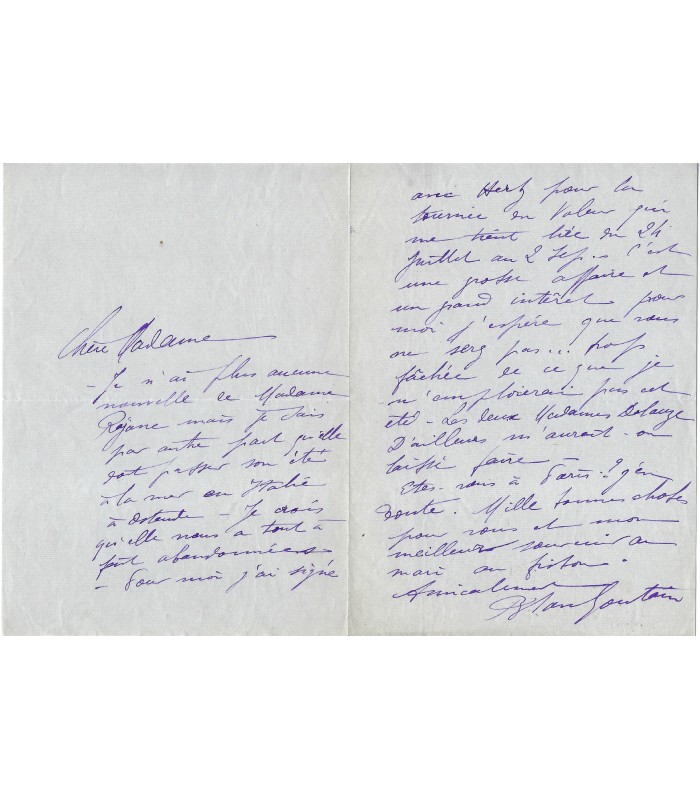 Chère Madame
- Je n'ai plus aucune
nouvelle de Madame
Réjane mais je sais
par autre part qu'elle
doit passer son été
à la mer en Italie
à - Je crois
qu'elle nous a tout à
fait abandonnées
- Pour moi j'ai signé
avec Hertz pour la
tournée du Voleur qui
me tient liée du 24
Juillet au 2 Sep. C'est
une grosse affaire et
un grand intérêt pour
moi j'espère que vous
ne serez pas... trop
fâchée de ce que je
n' pas cet
été - Les deux Madames
D'ailleurs m'aurait-on
laissé faire -
Etes-vous à Paris? J'en
doute. Mille bonnes choses
pour vous et mon
meilleur souvenir au
mari au fiston.
Amicalement